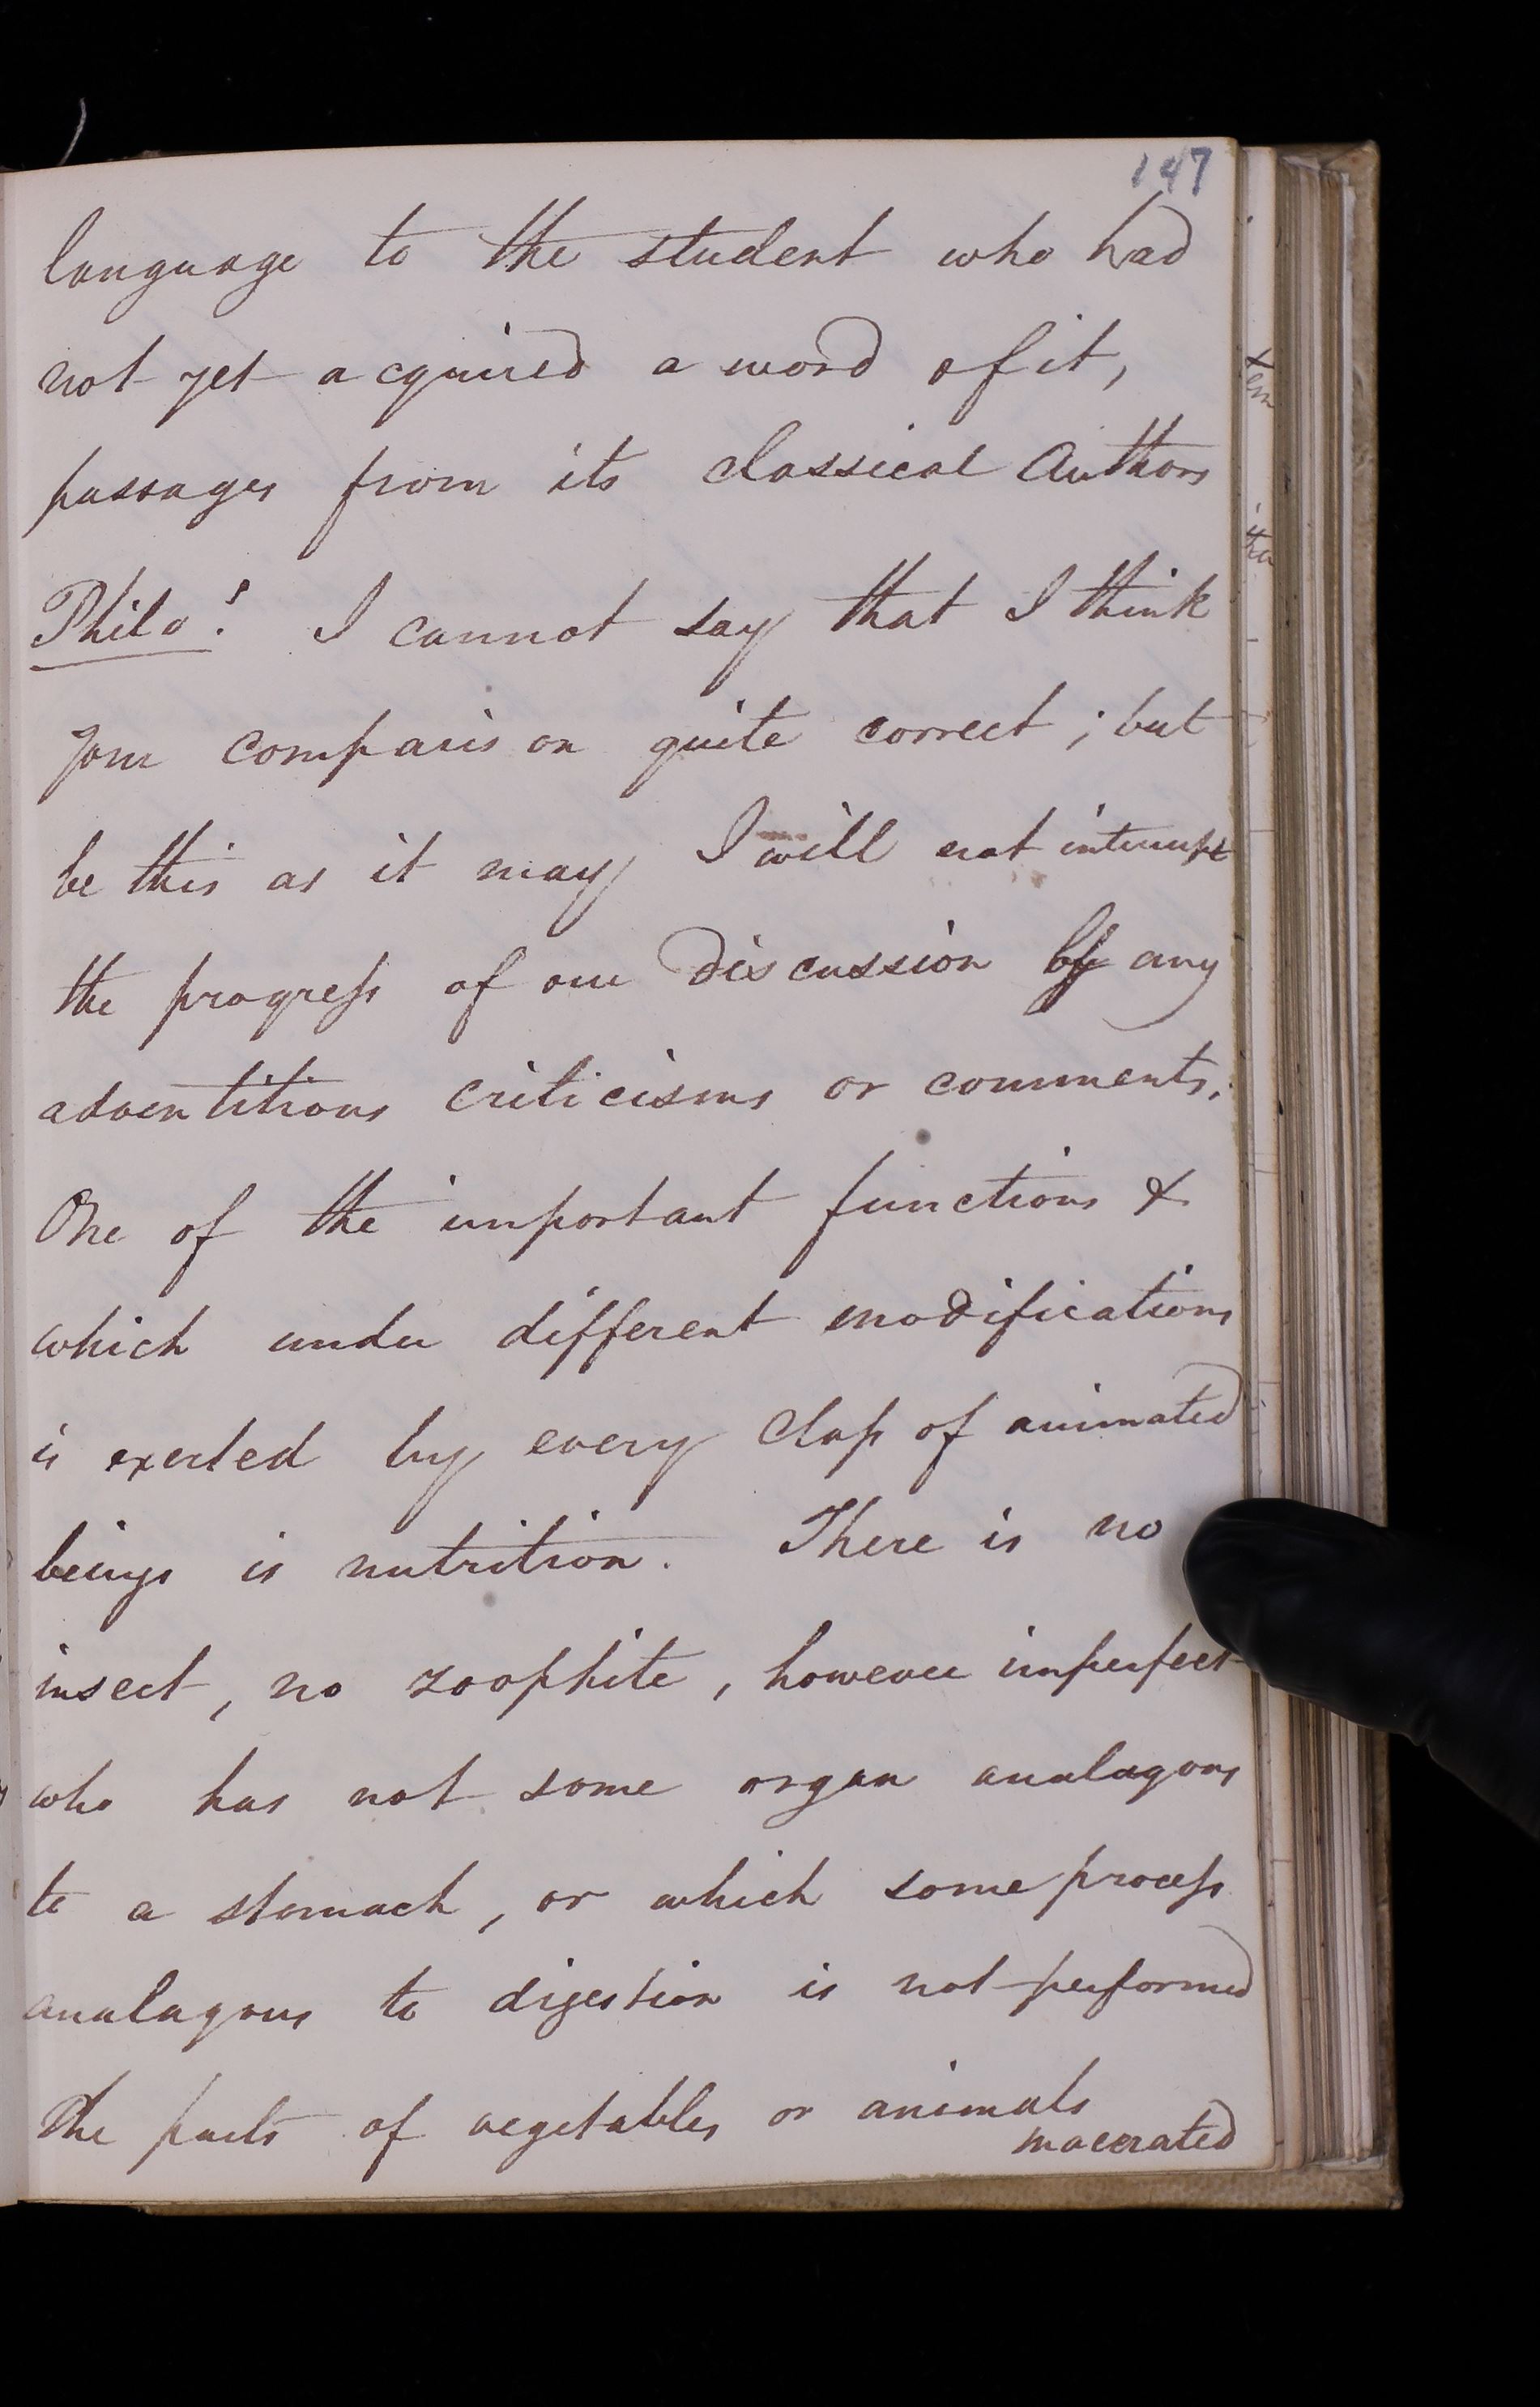 147
language to the student who had
not yet acquired a word of it,
passages from its classical Authors
Philo: I cannot say that I think
your comparison quite correct; but
be this as it may I will not interrupt
the progress of our discussion by any
adventitious criticisms or comments.
One of the important functions &
which under different modifications
is exerted by every Class of animated
beings is nutrition. There is no
insect, no zoophite, however imperfect
who has not some organ analagous
to a stomach, or which some process
analagous to digestion is not performed
The parts of vegetables or animals
macerated